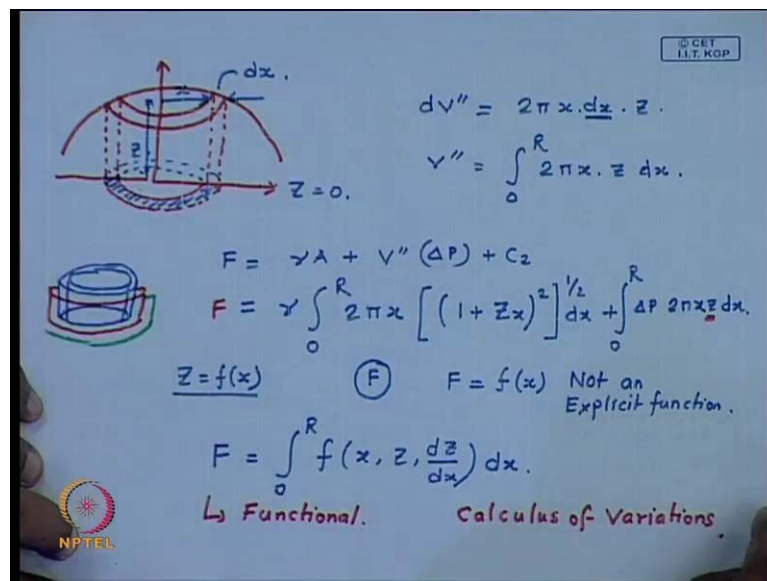 © CET
I.I.T. KGP
dx.
x
z
Z = 0.
dV'' = 2πx.dx.z.
V'' = ∫₀ᴿ 2πx. z dx.
F = γA + V''(ΔP) + C₂
F = γ ∫₀ᴿ 2πx [(1 + Zx)²]^{1/2} dx + ∫₀ᴿ ΔP 2πxz dx.
Z = f(x) F F = f(x) Not an
Explicit function.
F = ∫₀ᴿ f(x, z, dz/dx) dx.
↳ Functional. Calculus of Variations.
NPTEL